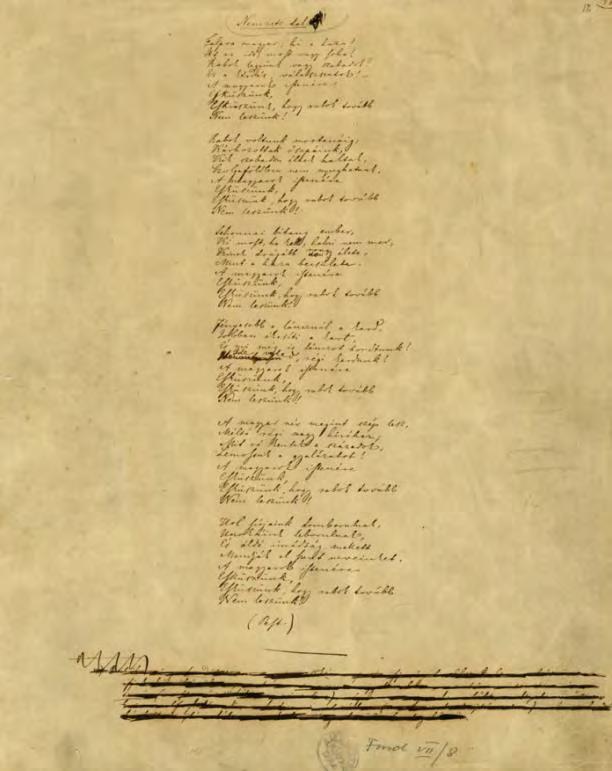 Nemzeti dal
Talpra magyar, hí a haza!
Itt az idő, most vagy soha!
Rabok legyünk vagy szabadok?
Ez a kérdés, válasszatok! –
A magyarok istenére
Esküszünk,
Esküszünk, hogy rabok tovább
Nem leszünk!
Rabok voltunk mostanáig,
Kárhozottak ősapáink,
Kik szabadon éltek haltak,
Szolgaföldben nem nyughatnak.
A magyarok istenére
Esküszünk,
Esküszünk, hogy rabok tovább
Nem leszünk!
Sehonnai bitang ember,
Ki most, ha kell, halni nem mer,
Kinek drágább rongy élete,
Mint a haza becsülete.
A magyarok istenére
Esküszünk,
Esküszünk, hogy rabok tovább
Nem leszünk!
Fényesebb a láncznál a kard,
Jobban ékesíti a kart,
És mi még is lánczot hordtunk!
Ide veled, régi kardunk!
A magyarok istenére
Esküszünk,
Esküszünk, hogy rabok tovább
Nem leszünk!
A magyar név megint szép lesz,
Méltó régi nagy hiréhez,
Mit rá kentek a századok,
Lemossuk a gyalázatot!
A magyarok istenére
Esküszünk,
Esküszünk, hogy rabok tovább
Nem leszünk!
Hol sírjaink domborulnak,
Unokáink leborulnak,
És áldó imádság mellett
Mondják el szent neveinket.
A magyarok istenére
Esküszünk,
Esküszünk, hogy rabok tovább
Nem leszünk!
(Pest.)
Fond VII/8